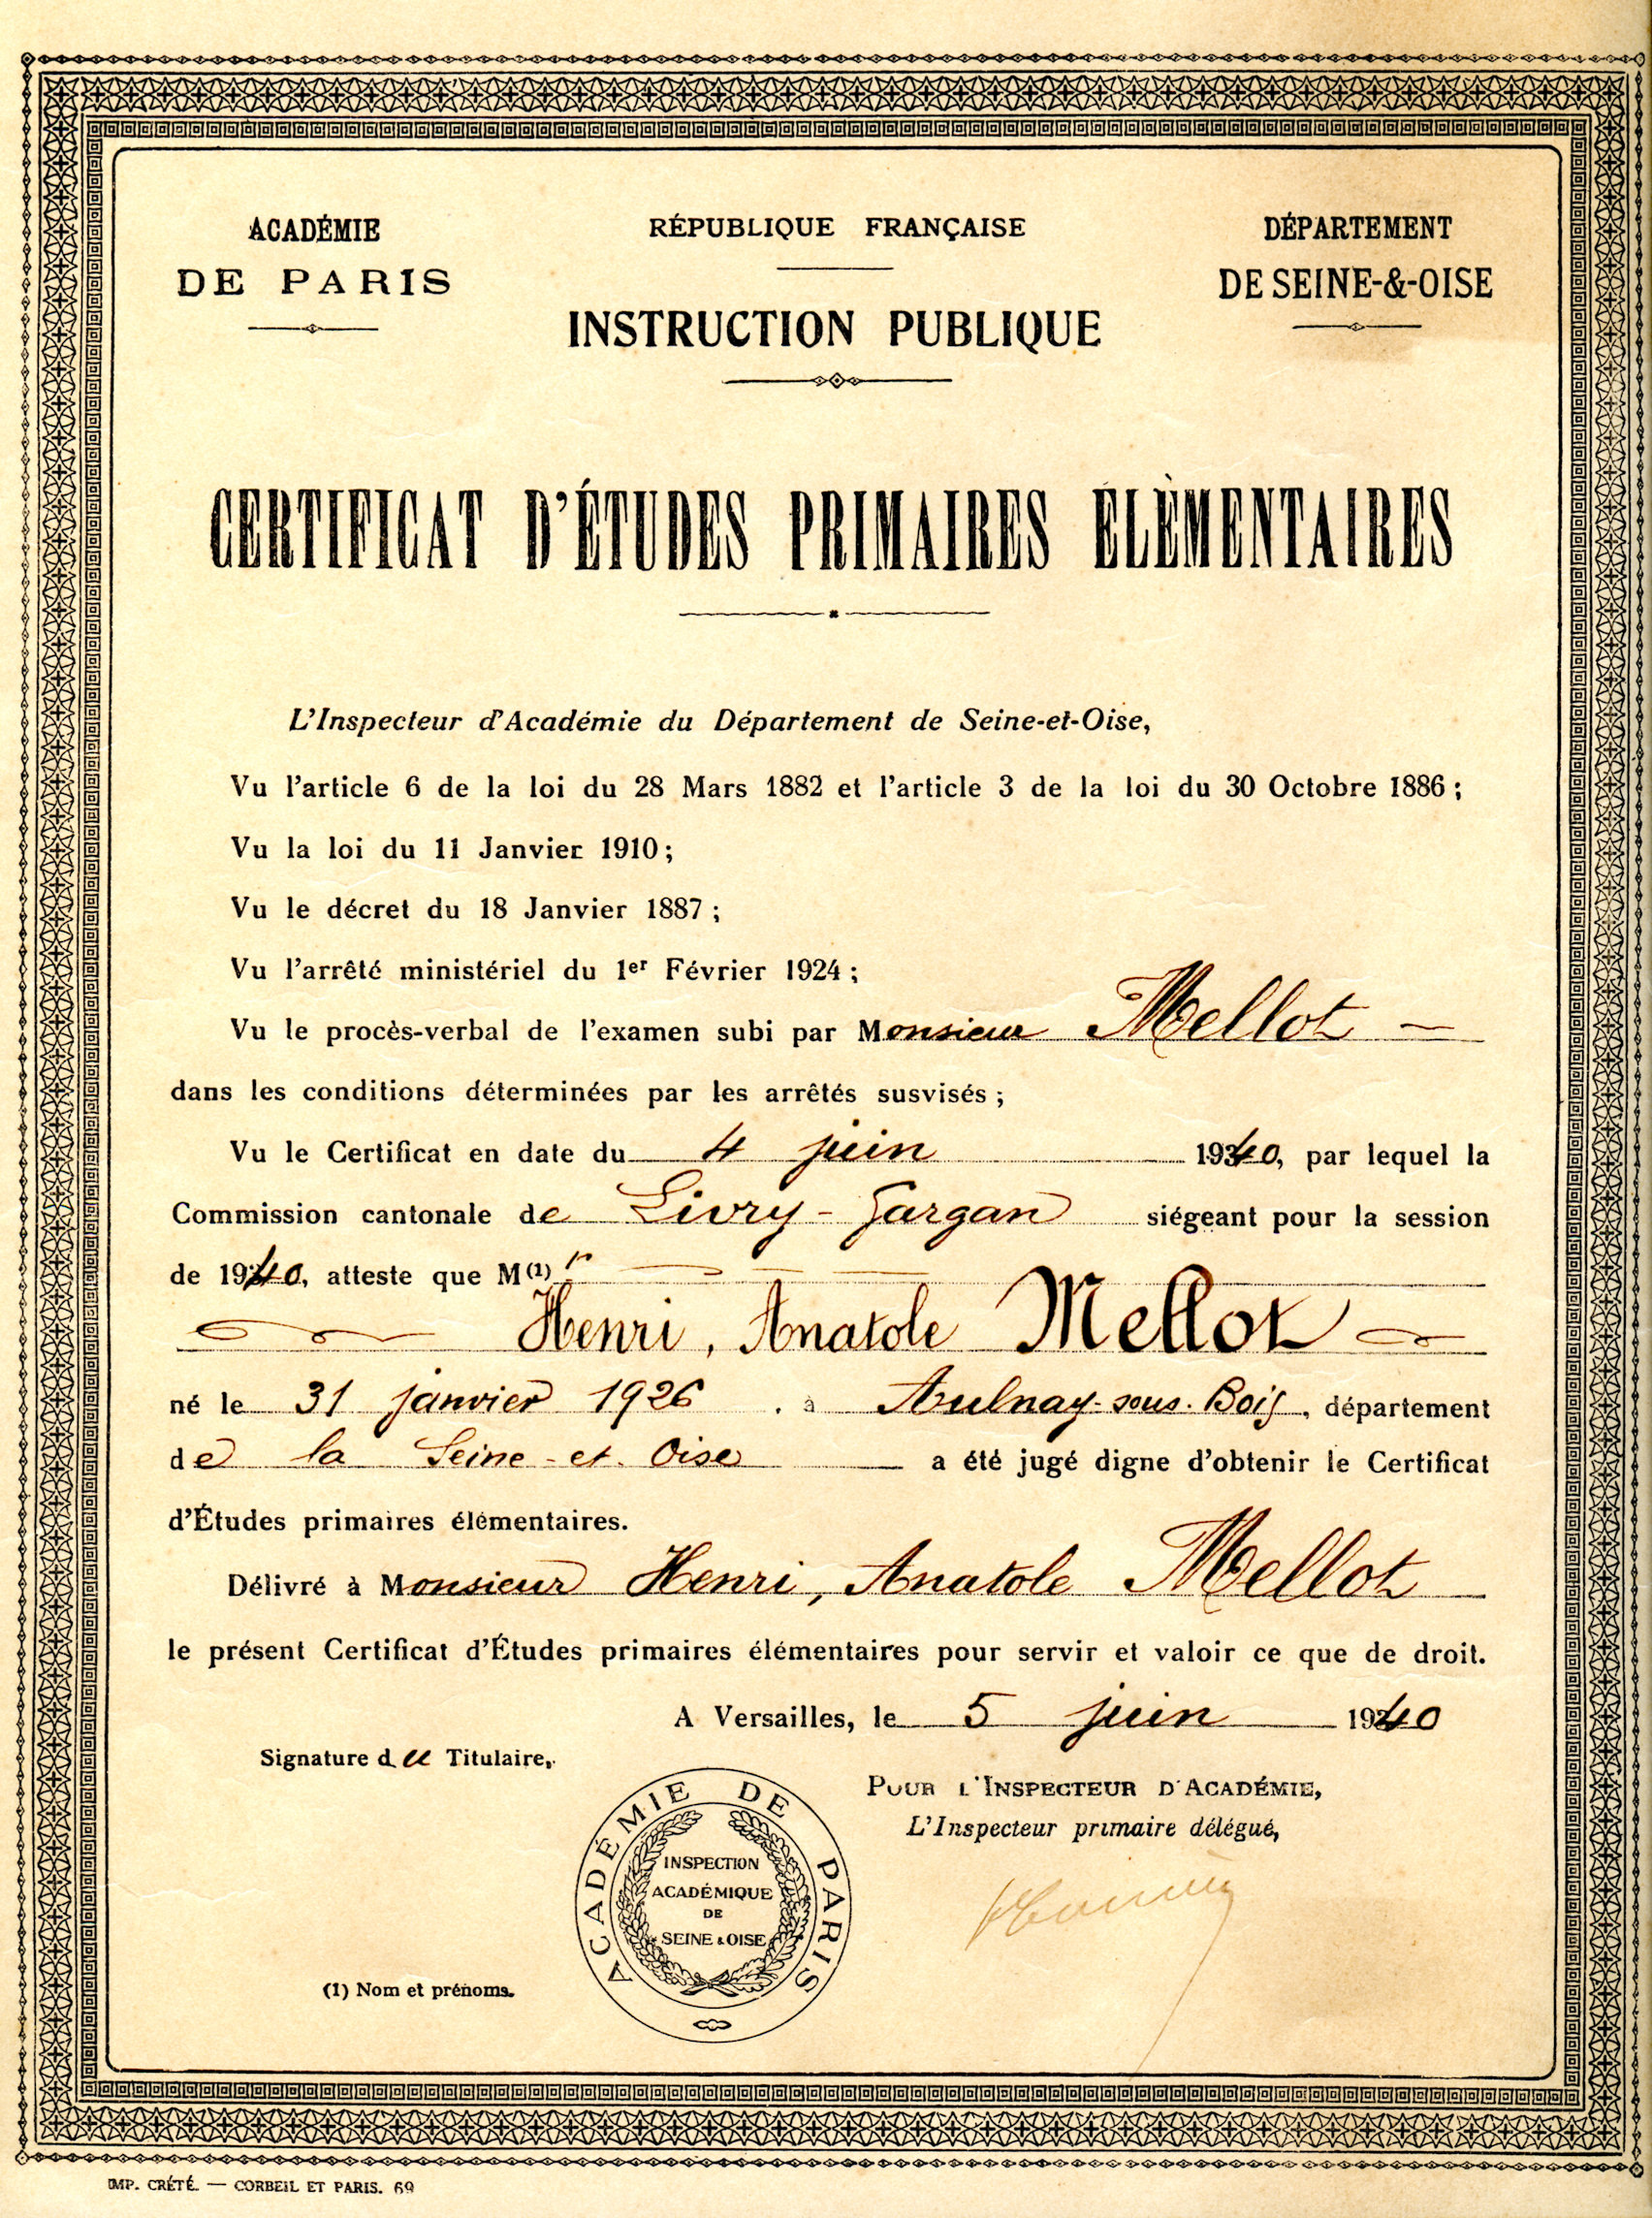 ACADÉMIE
DE PARIS
RÉPUBLIQUE FRANÇAISE
INSTRUCTION PUBLIQUE
DÉPARTEMENT
DE SEINE-&-OISE
CERTIFICAT D'ÉTUDES PRIMAIRES ÉLÉMENTAIRES
L'Inspecteur d'Académie du Département de Seine-et-Oise,
Vu l'article 6 de la loi du 28 Mars 1882 et l'article 3 de la loi du 30 Octobre 1886 ;
Vu la loi du 11 Janvier 1910 ;
Vu le décret du 18 Janvier 1887 ;
Vu l'arrêté ministériel du 1er Février 1924 ;
Vu le procès-verbal de l'examen subi par Monsieur Mellot —
dans les conditions déterminées par les arrêtés susvisés ;
Vu le Certificat en date du 4 juin 1940, par lequel la
Commission cantonale de Livry-Gargan siégeant pour la session
de 1940, atteste que M(1) r
Henri, Anatole Mellot
né le 31 janvier 1926 . à Aulnay-sous-Bois, département
de la Seine-et-Oise a été jugé digne d'obtenir le Certificat
d'Études primaires élémentaires.
Délivré à Monsieur Henri, Anatole Mellot
le présent Certificat d'Études primaires élémentaires pour servir et valoir ce que de droit.
A Versailles, le 5 juin 1940
Signature du Titulaire,
POUR L'INSPECTEUR D'ACADÉMIE,
L'Inspecteur primaire délégué,
ACADÉMIE DE PARIS
INSPECTION
ACADÉMIQUE
DE
SEINE & OISE
(1) Nom et prénoms.
IMP. CRÉTÉ. — CORBEIL ET PARIS. 69